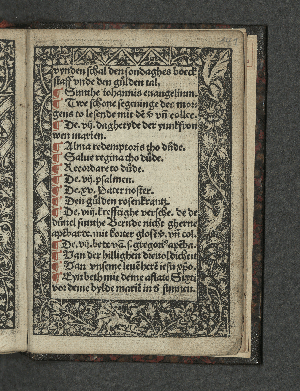 vynden schal den sondaghes boeck
staff vnde den gülden tal.
¶ Sunthe iohannis euangelium.
¶ Twe schone segeninge des mor
gens to lesende mit dē v̄ vn̄ collec.
¶ De .vij. daghetyde der yunkfrou
wen marien.
¶ Alma redemptoris tho dűde.
¶ Salue regina tho dűde.
¶ Recordare to dűde.
¶ De .vij. psalmen.
¶ De .xv. Pater noster.
¶ Den gülden rosenkrantz.
¶ De .viij. kreftighe versche. de de
düuel sunthe Bernde nicht gherne
apēbarte. mit korter glose v̄. vn̄ col.
¶ De .vij. bete vā. s. gregori⁹ apēba.
¶ Van der hillighen dreuoldicheit
¶ Van vnseme leuē herē iesu xp̄o.
¶ Eyn beth mit deme aflate Sixti
vor deme bylde marie in d' sunnen.